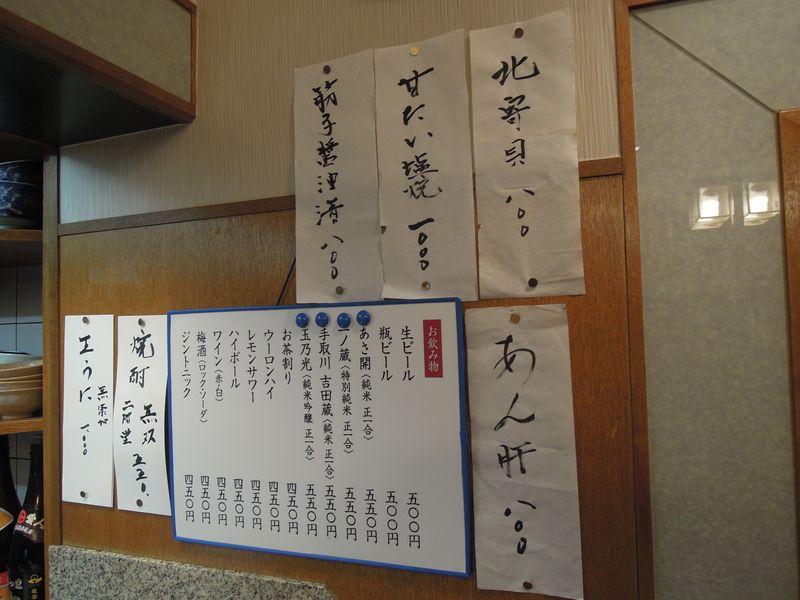 北寄貝 八〇〇
甘たい塩焼 一、〇〇〇
筋子醤油漬 八〇〇
あん肝 八〇〇
お飲み物
生ビール 五〇〇円
瓶ビール 五〇〇円
あさ開〈純米 正一合〉 五五〇円
一ノ蔵〈特別純米 正一合〉 五五〇円
手取川 吉田蔵〈純米 正一合〉 五五〇円
玉乃光〈純米吟醸 正一合〉 五五〇円
お茶割り 四五〇円
ウーロンハイ 四五〇円
レモンサワー 四五〇円
ハイボール 四五〇円
ワイン〈赤・白〉 四五〇円
梅酒〈ロック・ソーダ〉 四五〇円
ジントニック 四五〇円
焼酎 黒沢 二階堂 五五〇、
生うに 一、〇〇〇